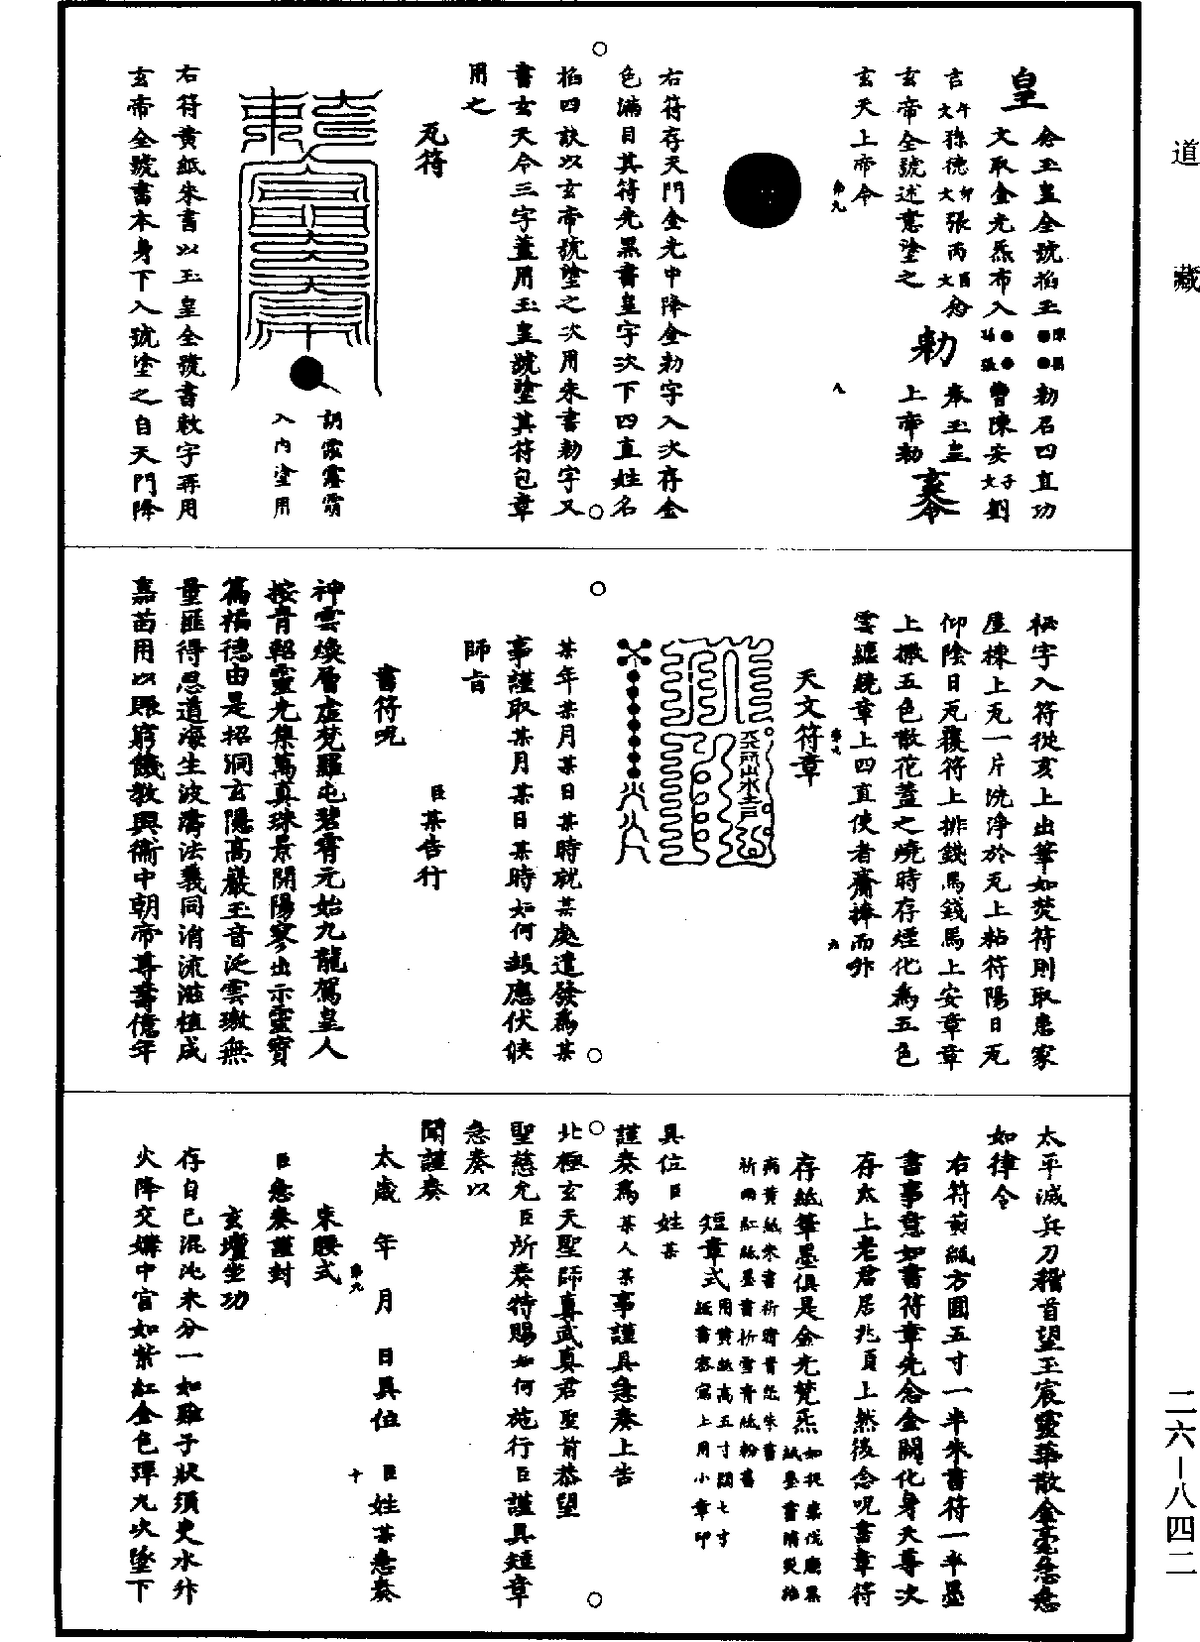 道藏
皇
念玉皇全號掐玉
勅召四直功
文取金光炁布入
曹陳安子文劉
吉午文孫德卯文張丙酉文念
奉玉皇
玄帝全號述意塗之
勅
上帝勅
玄天上帝令
第九
八
右符存天門金光中降金勅字入次存金
色滿目其符先黑書皇字次下四直姓名
掐四訣以玄帝號塗之次用朱書勅字又
書玄天令三字蓋用玉皇號塗其符包章
用之
瓦符
入內塗用
右符黃紙朱書以玉皇全號書敕字再用
玄帝全號書本身下入號塗之自天門降
柲字入符從亥上出筆如焚符則取患家
屋棟上瓦一片洗淨於瓦上粘符陽日瓦
仰陰日瓦覆符上排錢馬錢馬上安章章
上撒五色散花蓋之燒時存煙化為五色
雲纏繞章上四直使者齎捧而升
天文符章
第九
九
某年某月某日某時就某處遣發為某
事謹取某月某日某時如何報應伏候
師旨
臣某告行
書符呪
神雲煥層虛梵羅屯碧霄元始九龍駕皇人
按青軺靈光集萬真珠景開陽寥出示靈寶
篇福德由是招洞玄隱高巖玉音泛雲璈無
量匪得思道海生波濤法義同消流滋植成
嘉苗用以賑窮饑教興衞中朝帝尊壽億年
太平滅兵刀稽首望玉宸靈華散金毫急急
如律令
右符黃紙方圓五寸一半朱書符一半墨
書事意如書符章先念金闕化身天尊次
存太上老君居兆頂上然後念呪書章符
存紙筆墨俱是金光梵炁
病黃紙朱書祈晴青紙朱書
祈雨紅紙墨書祈雪青紙粉書
短章式
用黃紙高五寸闊七寸
紙書密寫上用小章印
具位臣姓某
謹奏為某人某事謹具急奏上告
北極玄天聖師真武真君聖前恭望
聖慈允臣所奏特賜如何施行臣謹具短章
急奏以
聞謹奏
太歲年月日具位臣姓某急奏
束腰式
第九
十
臣急奏謹封
玄壇坐功
存自己混沌未分一如雞子狀須臾水升
火降交媾中宮如紫紅金色彈丸次墜下
二六—八四二